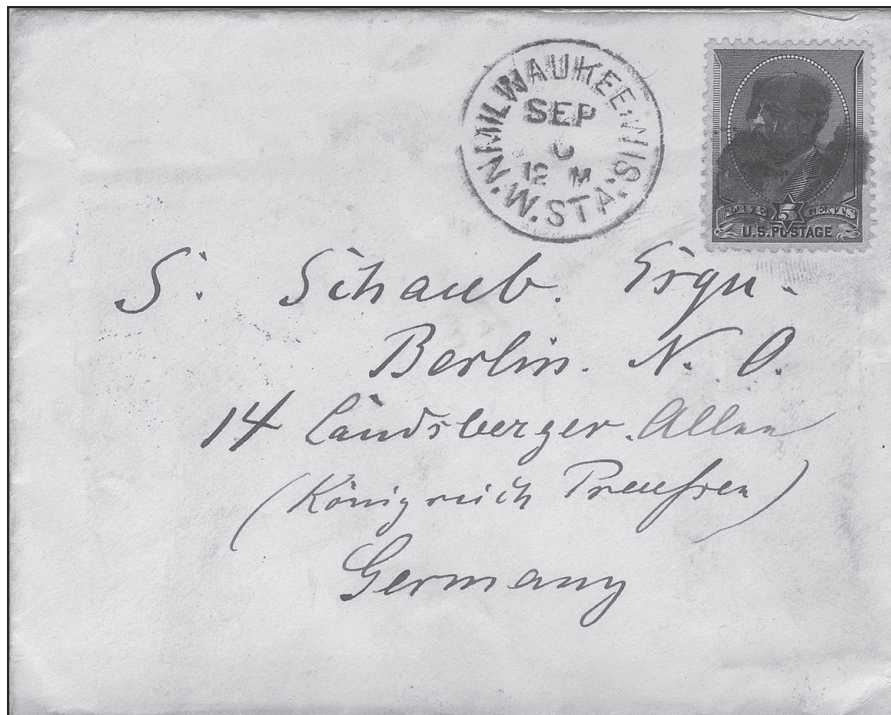 MILWAUKEE, WIS.
SEP
6
12 M
N.W. STA.
FIVE 5 CENTS
U.S. POSTAGE
S. Schaub. Esqu.
Berlin. N. O.
14 Landsberger. Allee
(Königreich Preußen)
Germany